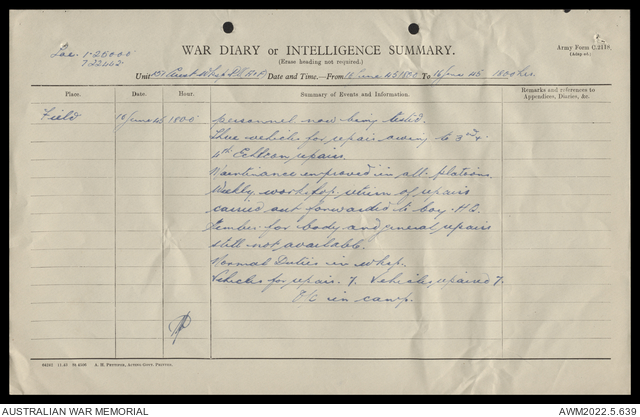 Loc. 1-25000
722402
WAR DIARY or INTELLIGENCE SUMMARY.
(Erase heading not required.)
Army Form C.2118.
(Adap-ed.)
Unit Aust Wksp Date and Time.—From 16 June 45 1800 To 16 June 45 1800 hrs.
Place.
Date.
Hour.
Summary of Events and Information.
Remarks and references to
Appendices, Diaries, &c.
Field
16 June 45
1800
personnel now being tested.
Three vehicles for repair owing to 3rd &
4th Echleon repairs.
Maintenance improved in all platoons.
Weekly workshop return of repairs
carried out forwarded to Coy. H.Q.
Timber for body and general repairs
still not available.
Normal Duties in wksp.
Vehicles for repair. 7. Vehicles repaired 7.
O/C in camp.
A. H. Pettifer, Acting Govt. Printer.
AUSTRALIAN WAR MEMORIAL
AWM2022.5.639